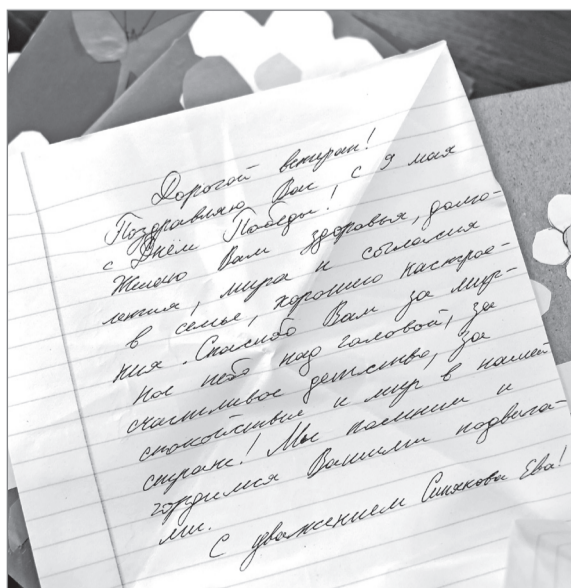 Дорогой ветеран!
Поздравляю Вас, с 9 мая
с Днём Победы!
Желаю Вам здоровья, долго-
летия, мира и согласия
в семье, хорошего настрое-
ния. Спасибо Вам за мир-
ное небо над головой, за
счастливое детство, за
спокойствие и мир в нашей
стране! Мы помним и
гордимся Вашими подвига-
ми.
С уважением Синякова Ева!